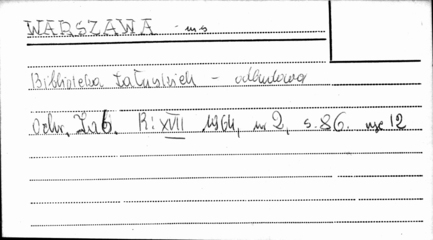 WARSZAWA - m s
Biblioteka Załuskich - odbudowa
Ochr. Zab. R: XVII 1964, nr 2, s. 86. ryc 12